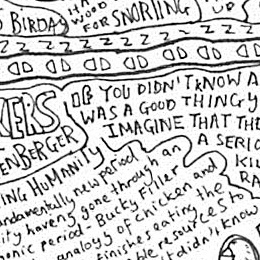 HA
WOOD
FOR SNORTING
O BIRDAY
UP
Z Z Z Z Z Z Z Z Z Z Z Z
KERS
ENBERGER
IF YOU DIDN'T KNOW A
WAS A GOOD THING Y
IMAGINE THAT THE
A SERIO
KIL
RA
ING HUMANITY
ndamentally new period
ity haveng gone through an
onic period - Bucky Fuller
analogy of chicken and
finishes eating the
ble resources to
it didn't know